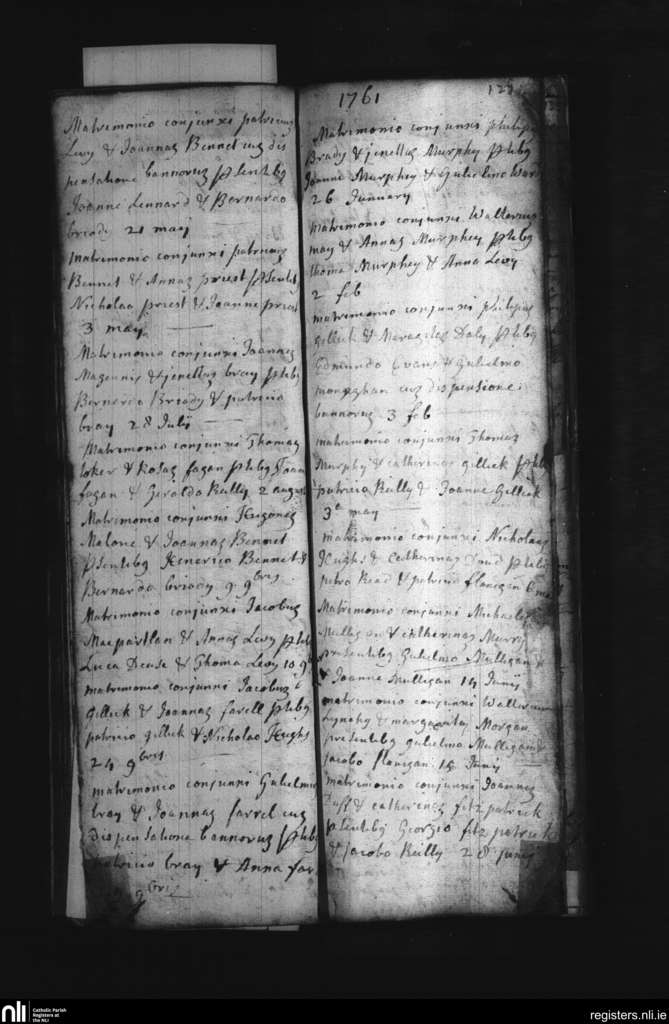 Matrimonio conjunxi patricium
Levy & Joannaz Bennet cuz dis
pensatione bannoruz pñsentibz
Joanne Lennard & Bernardo
bready 21 may
matrimonio conjunxi patriciuz
Bennet & Annaz priest pñsentibz
Nicholao priest & Joanne priest
3 may
Matrimonio conjunxi Joannez
Magennis & jenettaz bray pñtibz
Bernardo Bready & patricio
bray 28 Julii
Matrimonio conjunxi Thomaz
toker & Rosaz fagan pñtibz Joan
fagan & Geraldo Reilly 2 august
Matrimonio conjunxi Hugonez
Malone & Joannaz Bennet
pñsentibz Henerico Bennet &
Bernardo briody 9 9bris
Matrimonio conjunxi Jacobuz
Macpartlan & Annaz Levy pñtibz
Luca Dease & Thoma Levy 10 9b
matrimonio conjunxi Jacobuz
Gillick & Joannaz farell pñtibz
patricio gillick & Nicholao Hughs
24 9bris
matrimonio conjunxi Gulielmu
bray & Joannaz farrel cuz
Dispensatione bannoruz pñtibz
patricio bray & Anna far
9bris
1761
Matrimonio conjunxi philipu
Brady & jenettaz Murphy pñtibz
Joanne Murphey & Gulielmo Ward
26 January
matrimonio conjunxi Walteruz
may & Annaz Murphey pñtibz
thoma Murphey & Anna Levy
2 feb
matrimonio conjunxi philipuz
gillick & Daly pñtibz
Edmundo Evans & Gulielmo
monaghan cuz dispensione
bannoruz 3 feb
matrimonio conjunxi Thomaz
Murphy & catherinaz gillick pñtib
patricio Reilly & Joanne Gillick
3a may
matrimonio conjunxi Nicholauz
Hughs & Catherinaz pñtib
petro Read & patricio flanegan 6 may
Matrimonio conjunxi Michaele
Mulligan & catherinaz Murry
presentibz Gulielmo Mulligan
& Joanne Mulligan 14 Junij
matrimonio conjunxi Walterum
Lynchy & margaretaz Morgan
presentibz gulielmo Mulligan &
Jacobo flanigan 18 Junij
matrimonio conjunxi Joannez
Tuff & catherinaz fitz patrick
pñsentibz Georgio fitz patrick
& Jacobo Reilly 28 junij
nli
Catholic Parish
Registers at
the NLI
registers.nli.ie